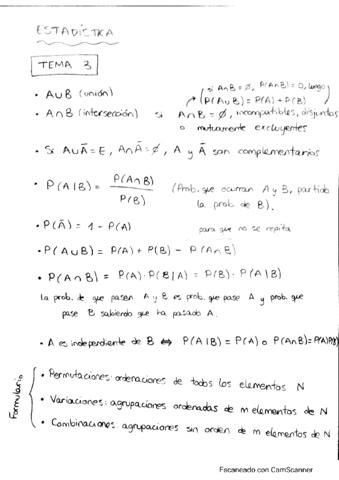 ESTADÍSTICA
TEMA 3
• A∪B (unión)
(si A∩B = ∅, P(A∩B) = 0, luego
P(A∪B) = P(A) + P(B)
• A∩B (intersección) si A∩B = ∅, incompatibles, disjuntos
o mutuamente excluyentes
• Si A∪Ā = E, A∩Ā = ∅, A y Ā son complementarios
• P(A|B) = P(A∩B) / P(B) (Prob. que ocurran A y B, partido
la prob. de B).
• P(Ā) = 1 - P(A) para que no se repita
• P(A∪B) = P(A) + P(B) - P(A∩B)
• P(A∩B) = P(A)·P(B|A) = P(B)·P(A|B)
la prob. de que pasen A y B es prob. que pase A y prob. que
pase B sabiendo que ha pasado A.
• A es independiente de B ⇔ P(A|B) = P(A) o P(A∩B) = P(A)P(B)
Formulario
• Permutaciones: ordenaciones de todos los elementos N
• Variaciones: agrupaciones ordenadas de m elementos de N
• Combinaciones: agrupaciones sin orden de m elementos de N
Escaneado con CamScanner